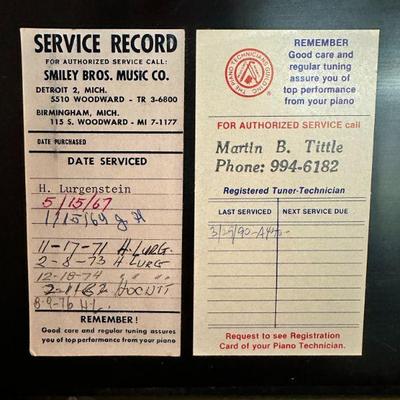 SERVICE RECORD
FOR AUTHORIZED SERVICE CALL:
SMILEY BROS. MUSIC CO.
DETROIT 2, MICH.
5510 WOODWARD - TR 3-6800
BIRMINGHAM, MICH.
115 S. WOODWARD - MI 7-1177
DATE PURCHASED
DATE SERVICED
H. Lurgenstein
5/15/67
11-17-71 H. LURG.
2-8-73 H. LURG
12-18-74 " "
8-9-76 H.L.
REMEMBER!
Good care and regular tuning assures
you of top performance from your piano
THE PIANO TECHNICIANS GUILD, INC.
REMEMBER
Good care and
regular tuning
assure you of
top performance
from your piano
FOR AUTHORIZED SERVICE call
Martin B. Tittle
Phone: 994-6182
Registered Tuner-Technician
LAST SERVICED
NEXT SERVICE DUE
Request to see Registration
Card of your Piano Technician.